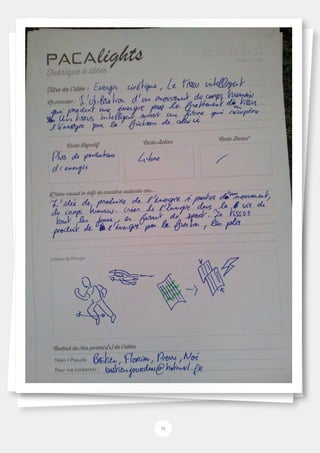 PACAlights
Fabrique à idées
Titre de l'idée : Energie cinétique, Le tissu intelligent
Le concept : L'Utilisation d'un mouvement du corps humain
qui produit une énergie par le frottement du tissu.
Un tissus intelligent avec un fibre qui récupère
l'énergie par la friction de celui-ci
Carte Objectif
Carte Action
Carte Bonus*
Plus de production
d'energie
Libre
/
L'idée résout le défi de manière radicale car...
L'idée de produire de l'énergie à partir d'un mouvement
du corps humain. Créer de l'énergie dans la vie de
tout les jours, en faisant du sport. Le tissus
produit de l'énergie par la friction, les plis
Schéma de Principe
Contact du/des porteur(s) de l'idée
Nom / Pseudo : Bastien, Florian, Pierre, Noé
Pour me contacter : @hotmail.fr